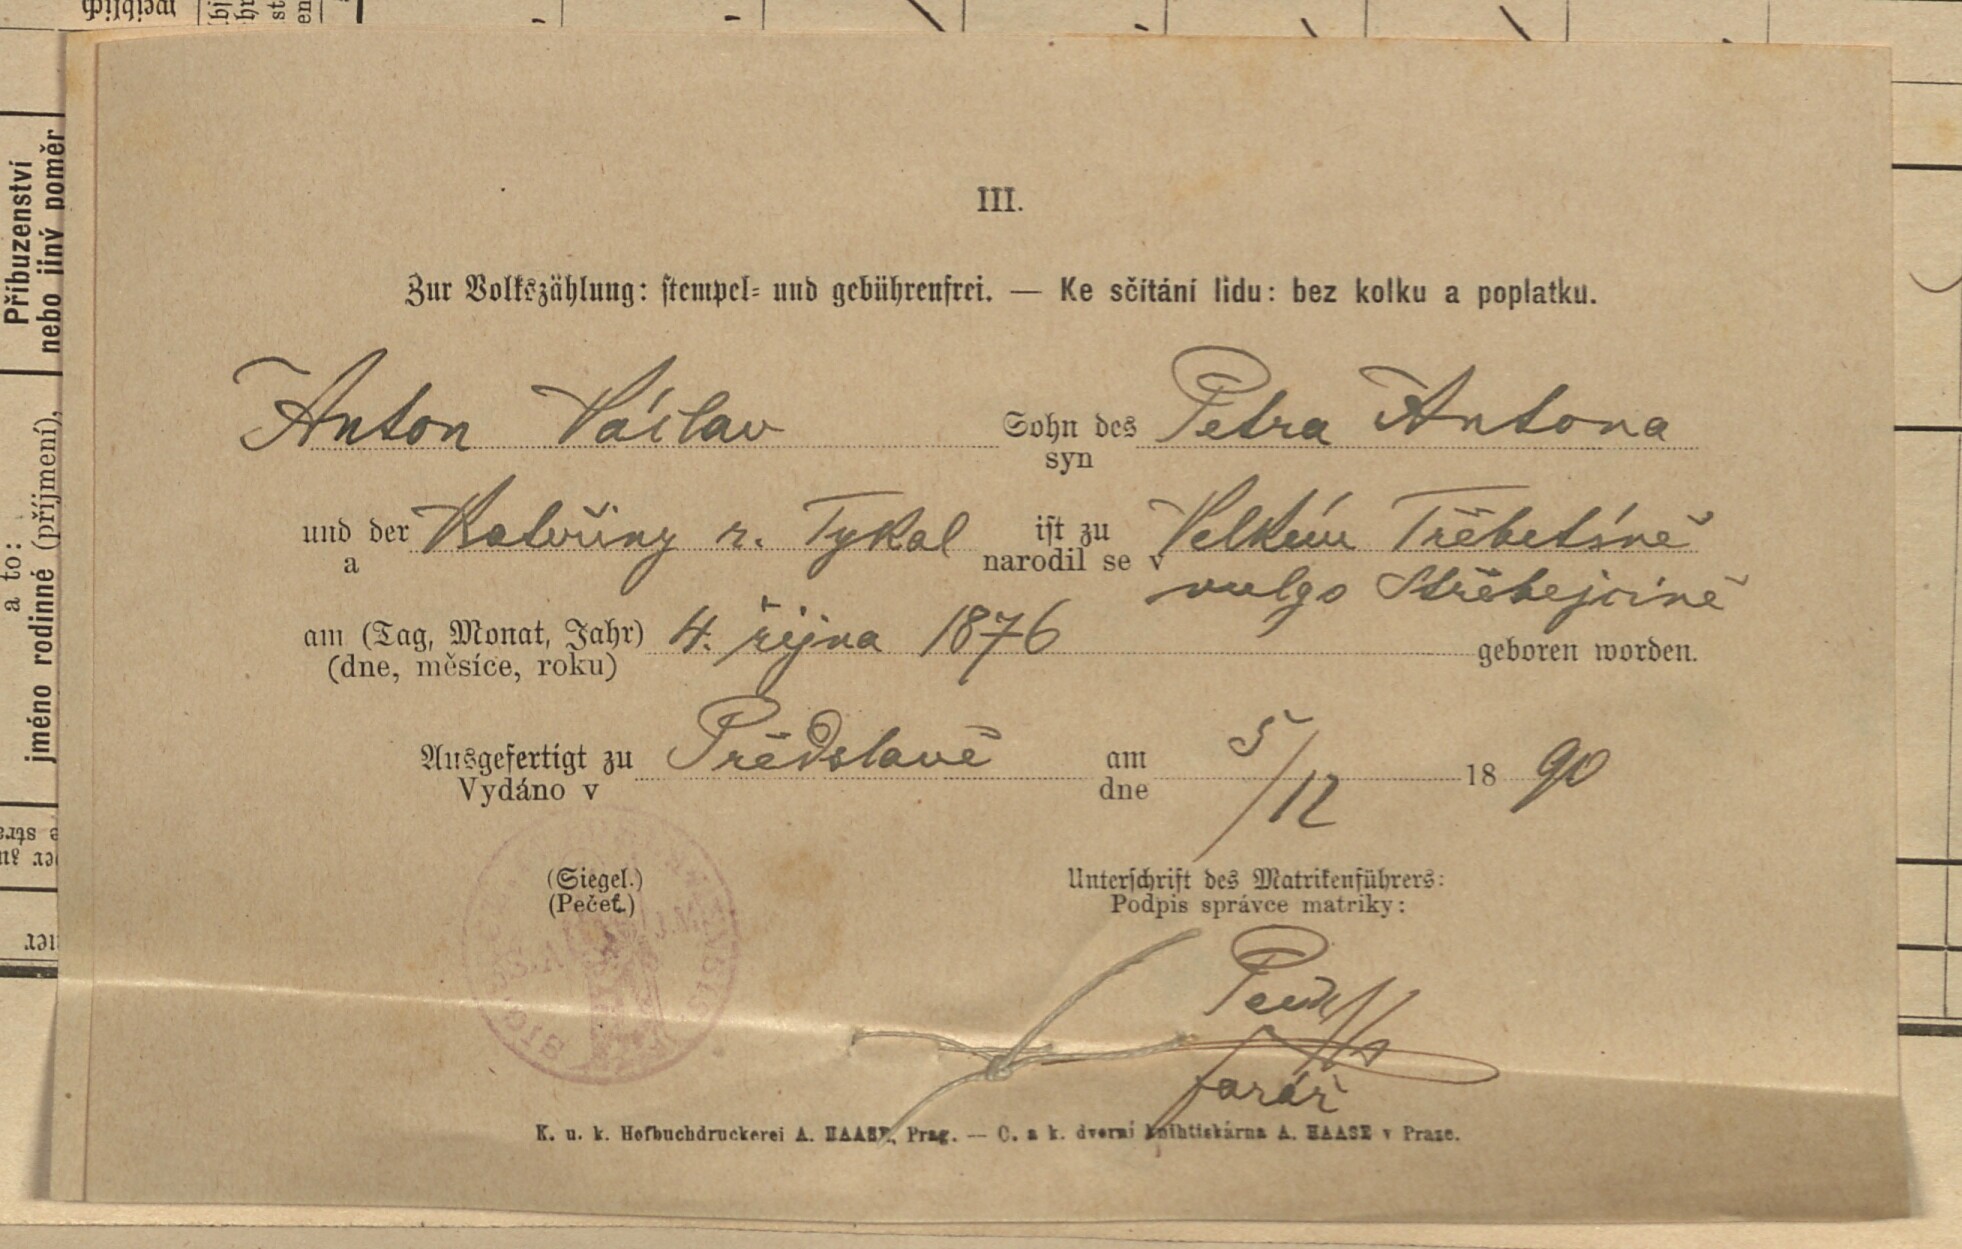 III.
Zur Volkszählung: stempel- und gebührenfrei. — Ke sčítání lidu: bez kolku a poplatku.
Anton Václav Sohn des Petra Antona
syn
und der Kateřiny r. Tykal ist zu Velkém Třebetíně
a narodil se v
vulgo Střebejcíně
am (Tag, Monat, Jahr) 4. října 1876 geboren worden.
(dne, měsíce, roku)
Ausgefertigt zu Předslavě am 5/12 1890
Vydáno v dne
(Siegel.) Unterschrift des Matrikenführers:
(Pečeť.) Podpis správce matriky:
farář
K. u. k. Hofbuchdruckerei A. HAASE, Prag. — C. a k. dvorní knihtiskárna A. HAASE v Praze.
Příbuzenství
nebo jiný poměr
a to:
jméno rodinné (příjmení),
weiblich